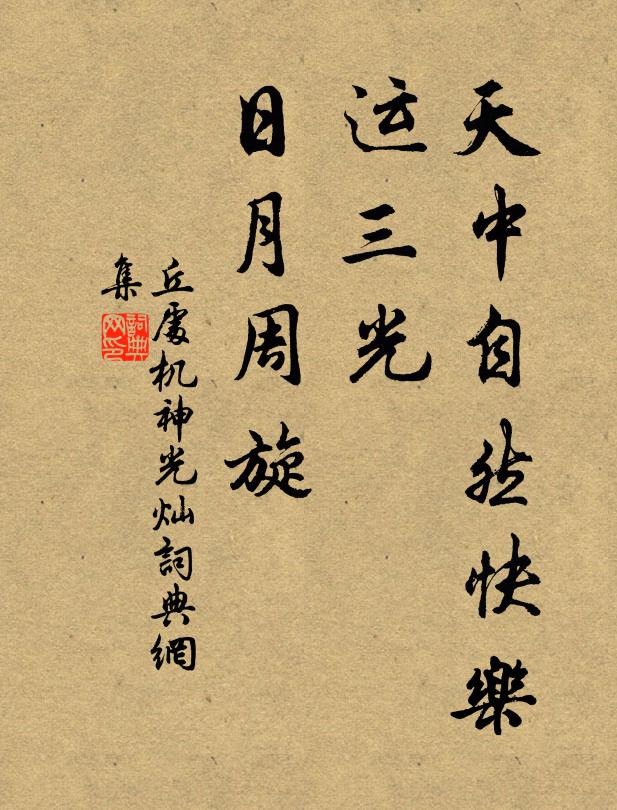 天中自然快樂
运三光
日月周旋
丘處机神光灿詞典網
集
詞典
网印